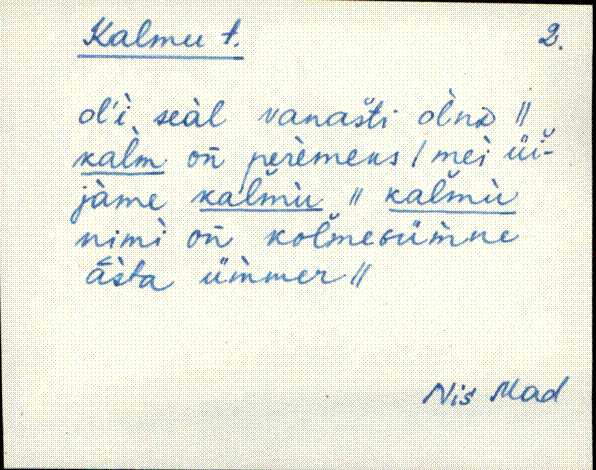 Kalmu t. 2.
ol'i seàl vanašti òlnə ||
kàlm on̄ perèmeɴs / mei üi-
jàme kal̆mù || kal̆mù
nimì on̄ kol̆meɢüm̀ne
āsta üm̀mer ||
Nis Mad